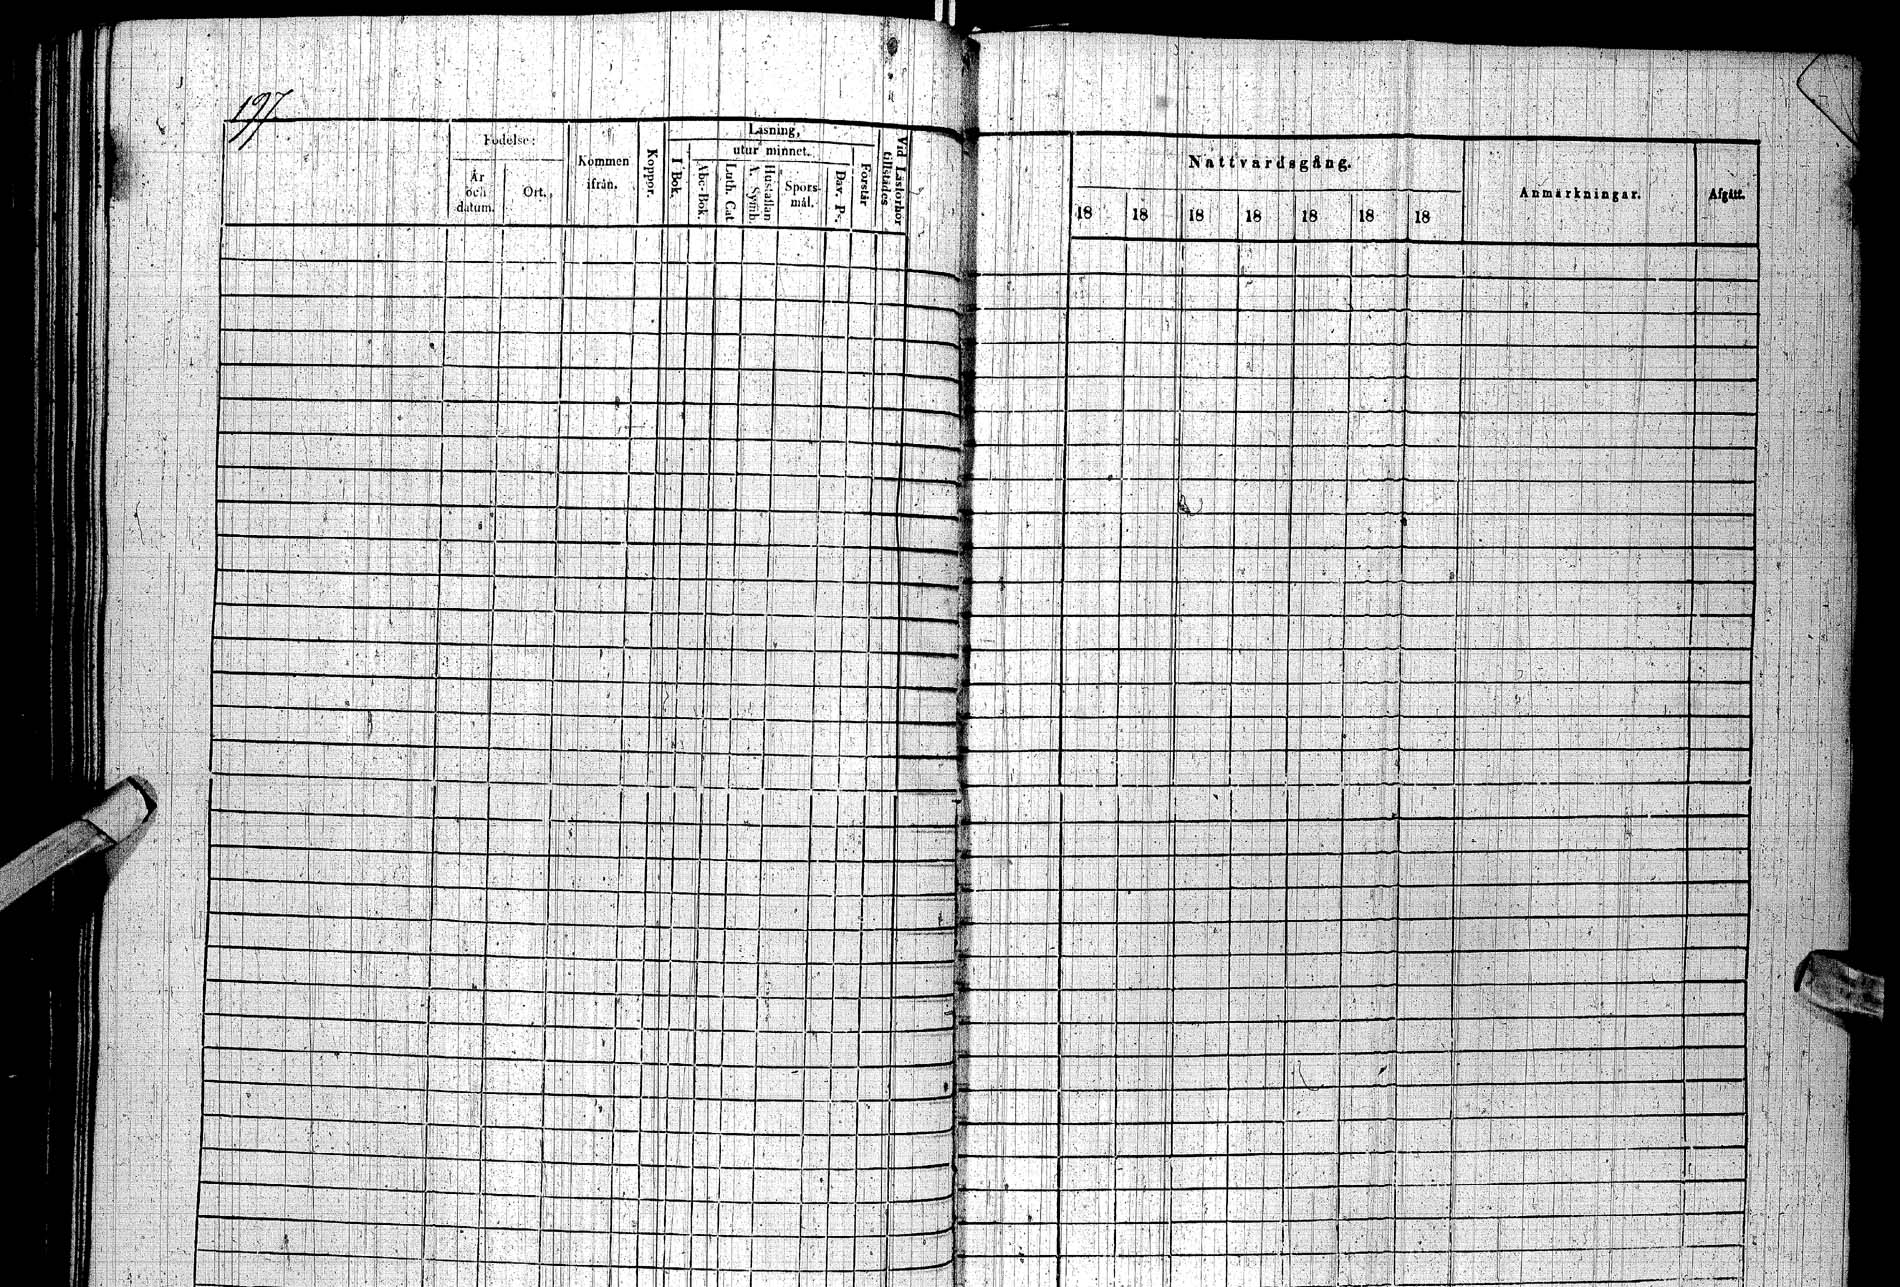 197
Födelse:
År och datum.
Ort.
Kommen ifrån.
Koppor.
Läsning,
I Bok.
utur minnet.
Abc-Bok.
Luth. Cat.
Hustaflan A. Symb.
Spörs-mål.
Dav. Ps.
Förstår
Vid Läsförhör tillstädes
Nattvardsgång.
18 18 18 18 18 18 18
Anmärkningar.
Afgått.